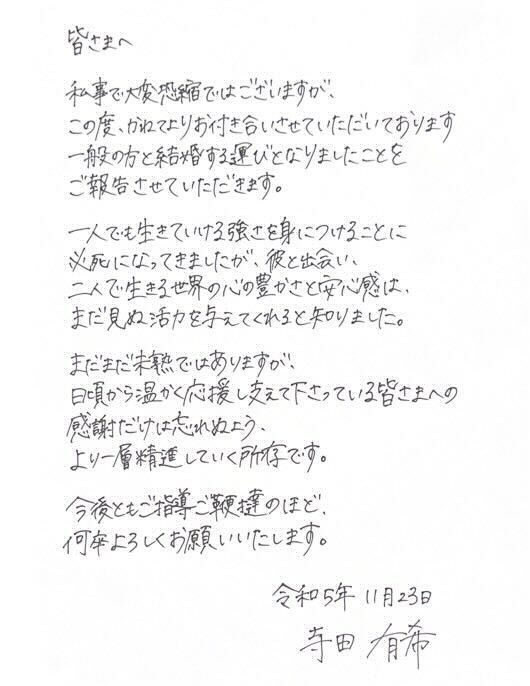 皆さまへ
私事で大変恐縮ではございますが、
この度、かねてよりお付き合いさせていただいております
一般の方と結婚する運びとなりましたことを
ご報告させていただきます。
一人でも生きていける強さを身につけることに
必死になってきましたが、彼と出会い、
二人で生きる世界の心の豊かさと安心感は、
まだ見ぬ活力を与えてくれると知りました。
まだまだ未熟ではありますが、
日頃から温かく応援し支えて下さっている皆さまへの
感謝だけは忘れぬよう、
より一層精進していく所存です。
今後ともご指導ご鞭撻のほど、
何卒よろしくお願いいたします。
令和5年 11月23日
寺田 有希